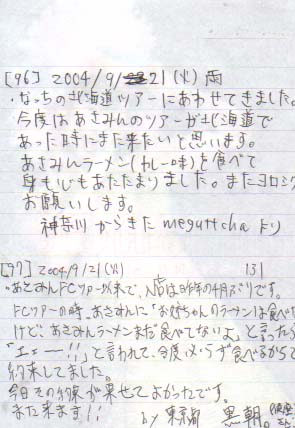 [96] 2004/9/21(火)雨
・なっちの北海道ツアーにあわせてきました。
今度はあさみんのツアーが北海道で
あった時にまた来たいと思います。
あさみんラーメン(カレー味)を食べて
身も心もあたたまりました。またヨロシク
お願いします。
神奈川からきた meguttcha より
[97] 2004/9/21(火) 131
・あさみんFCツアー以来で、入店は昨年の4月ぶりです。
FCツアーの時、あさみんに「お姉ちゃんのラーメンは食べた
けど、あさみんラーメンまだ食べてないよ」と言ったら
「エェー!!」と言われて、今度必ず食べるからって
約束してました。
今日その約束が果せてよかったです。
また来ます!!
by 東京都 黒朝。